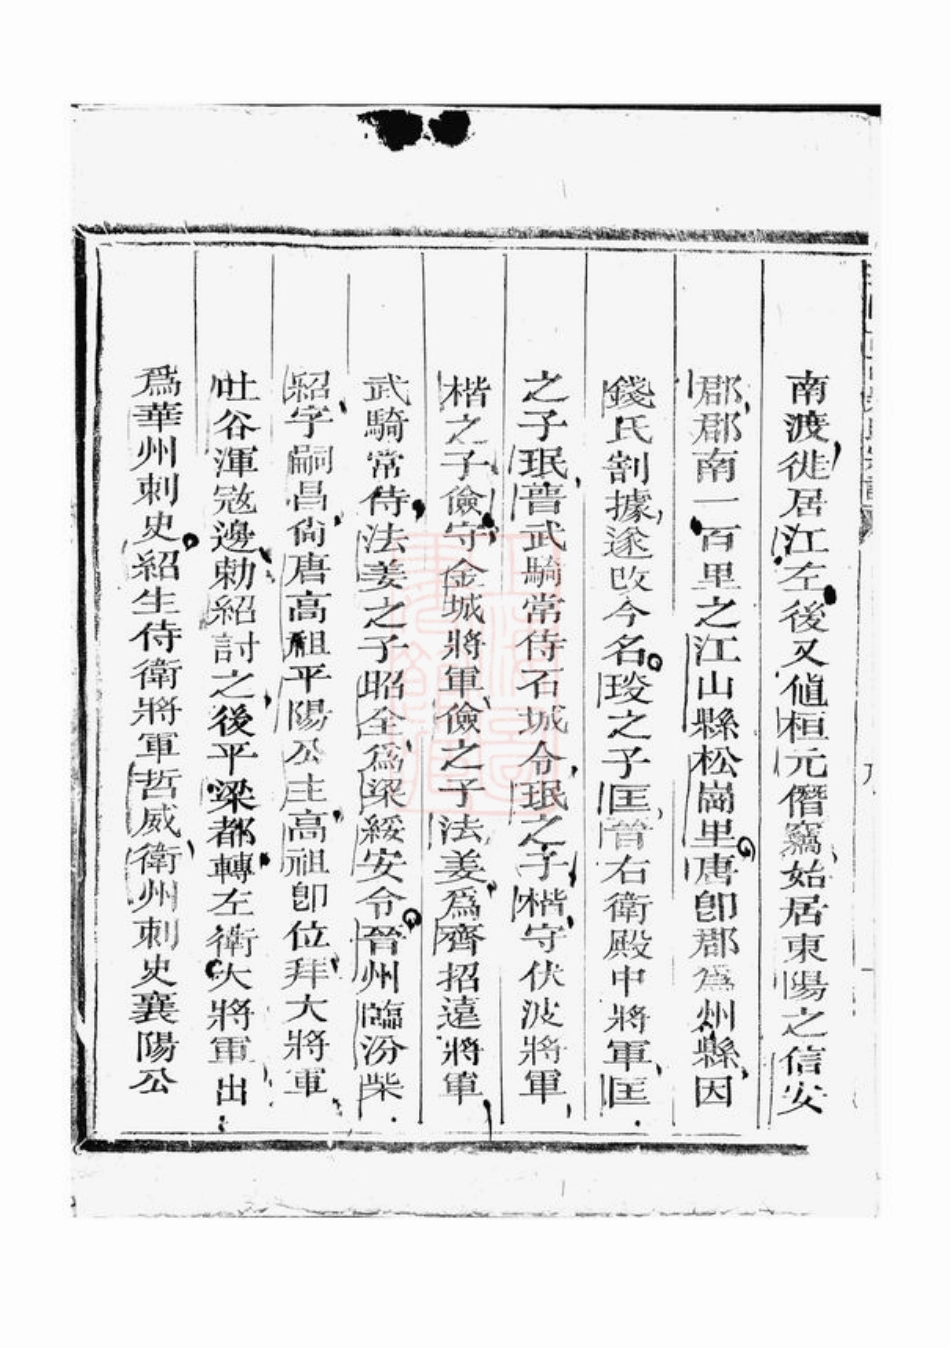 南渡徙居江左後又値桓元僭竊始居東陽之信安
郡郡南一百里之江山縣松崗里唐卽郡爲州縣因
錢氏割據遂改今名琝之子匡晉右衛殿中將軍匡
之子珉晉武騎常侍石城令珉之子楷守伏波將軍
楷之子儉守金城將軍儉之子法姜爲齊招遠將軍
武騎常侍法姜之子昭仝爲梁綏安令晉州臨汾柴
紹字嗣昌尙唐高祖平陽公主高祖卽位拜大將軍
吐谷渾寇邊勅紹討之後平梁都轉左衛大將軍出
爲華州刺史紹生侍衛將軍哲威衛州刺史襄陽公